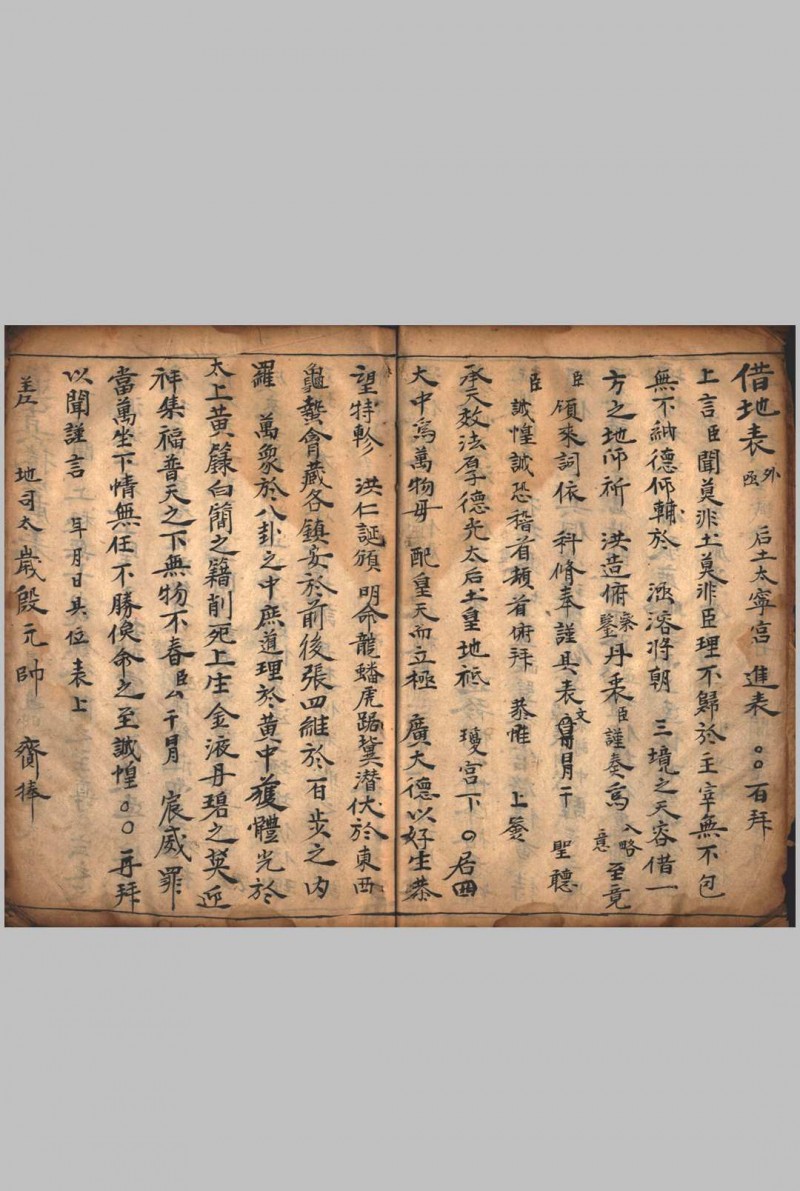 借地表 外函 后土太寧宮 進表 〇〇百拜
上言臣聞莫非土莫非臣理不歸於主宰無不包
無不納德仰輔於 滋溶將朝 三境之天容借一
方之地仰祈 洪造俯鑒察丹衷臣謹奏爲 入略意 至竟
臣 頒來詞依 科脩奉謹具表文 冒干 聖聽
臣 誠惶誠恐稽首頓首俯拜 恭惟 上奏
承天效法厚德光大后土皇地祗 瓊宮下 〇居四
大中爲萬物母 配皇天而立極 廣大德以好生恭
望特軫 洪仁誕頒 明命龍蟠虎踞冀潛伏於東西
龜螯會藏各鎮安於前後張四維於百步之内
羅 萬象於八卦之中庶道理於黄中獲體光於
太上黄籙白簡之籍削死上生金液丹碧之英迎
祥集福普天之下無物不春臣厶 干冒 宸威罪
當萬坐下情無任不勝俟命之至誠惶〇〇再拜
以聞謹言 年月日具位 表上
差 地司太歲殷元帥 齎捧